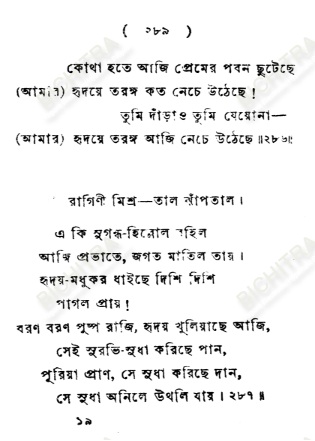 ( ২৮৯ )
কোথা হতে আজি প্রেমের পবন ছুটেছে
(আমার) হৃদয়ে তরঙ্গ কত নেচে উঠেছে !
তুমি দাঁড়াও তুমি যেয়োনা—
(আমার) হৃদয়ে তরঙ্গ আজি নেচে উঠেছে ॥২৮৬॥
রাগিণী মিশ্র—তাল ঝাঁপতাল।
এ কি সুগন্ধ-হিল্লোল বহিল
আজি প্রভাতে, জগত মাতিল তায়।
হৃদয়-মধুকর ধাইছে দিশি দিশি
পাগল প্রায় !
বরণ বরণ পুষ্প রাজি, হৃদয় খুলিয়াছে আজি,
সেই সুরভি-সুধা করিছে পান,
পূরিয়া প্রাণ, সে সুধা করিছে দান,
সে সুধা অনিলে উথলি যায়। ২৮৭॥
১৯
BICHITRA
BICHITRA
BICHITRA